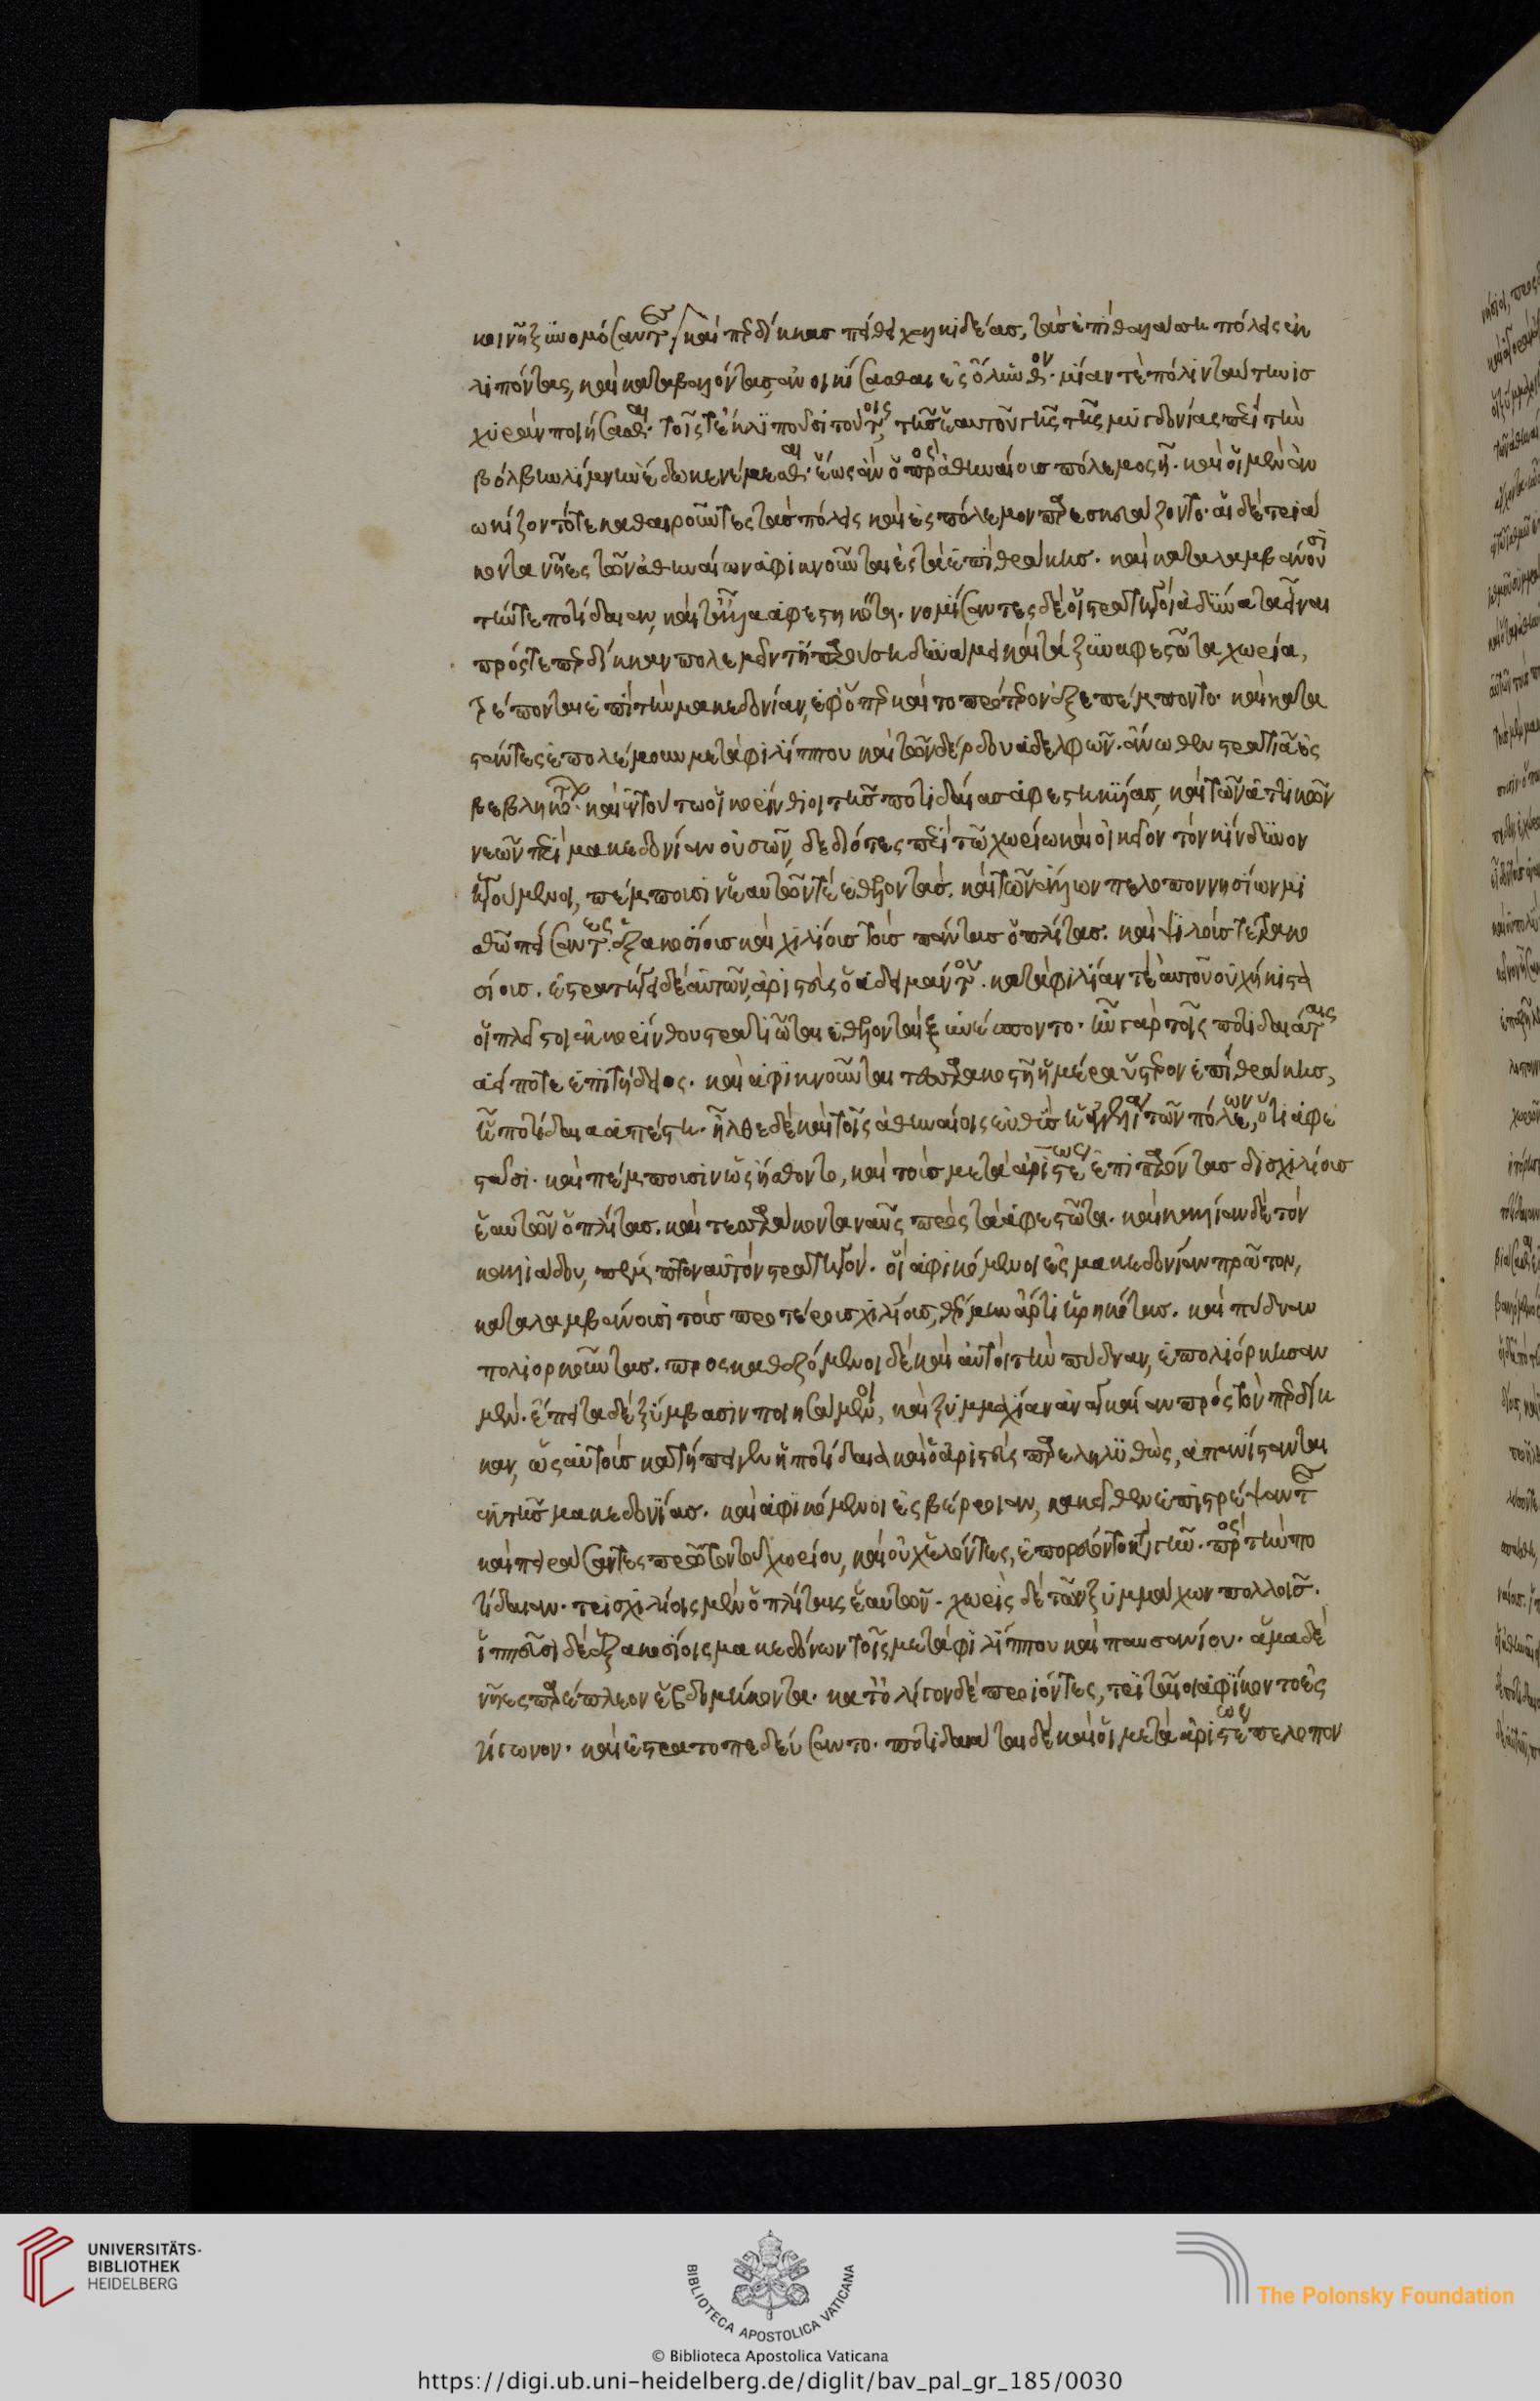 κοινῆ ξυνομόσαντες, καὶ περδίκκας πείθει χαλκιδέας, τὰς ἐπὶ θαλάσση πόλεις ἐκ
λιπόντας, καὶ καταβαλόντας, ἀνοικίσασθαι ἐς ὄλυνθον. μίαν τὲ πόλιν ταύτην ἰσ
χυρὰν ποιήσασθαι. τοῖς τὲ ἐκλιποῦσι τούτοις, τῆς ἑαυτοῦ γῆς τῆς μυγδονίας περὶ τὴν
βόλβην λίμνην ἔδωκε νέμεσθαι. ἕως ἂν ὁ πρὸς ἀθηναίους πόλεμος ῆ. καὶ οἱ μὲν ἀν
ωκίζοντό τε καθαιροῦντες τὰς πόλεις καὶ ἐς πόλεμον παρεσκευάζοντο. αἱ δὲ τριά
κοντα νῆες τῶν ἀθηναίων ἀφικνοῦνται ἐς τὰ ἐπὶ θράκης. καὶ καταλαμβάνουσι
τήν τε ποτίδαιαν, καὶ τἆλλα ἀφεστηκότα. νομίσαντες δὲ οἱ στρατηγοὶ ἀδύνατα εἶναι
πρός τε περδίκκαν πολεμεῖν τῆ παρούση δυνάμει καὶ τὰ ξυναφεστῶτα χωρία,
τρέπονται ἐπὶ τὴν μακεδονίαν, ἐφ' ὅπερ καὶ τὸ πρότερον ἐξεπέμποντο. καὶ κατα
στάντες ἐπολέμουν μετὰ φιλίππου καὶ τῶν δέρδου ἀδελφῶν. ἄνωθεν στρατιᾶ ἐς
βεβληκότων. καὶ ἐν τούτω οἱ κορίνθιοι τῆς ποτιδαίας ἀφεστηκυίας, καὶ τῶν ἀττικῶν
νεῶν περὶ μακεδονίαν οὐσῶν, δεδιότες περὶ τῶ χωρίω καὶ οἰκεῖον τὸν κίνδυνον
ἡγούμενοι, πέμπουσιν ἑαυτῶν τὲ ἐθέλοντας. καὶ τῶν ἄλλων πελοποννησίων μι
σθῶ πείσαντες. ἑξακοσίους καὶ χιλίους τοὺς πάντας ὁπλίτας. καὶ ψιλοὺς τετρακο
σίους. ἐστρατήγει δὲ αὐτῶν, ἀριστεὺς ὁ ἀδειμάντου. κατὰ φιλίαν τὲ αὐτοῦ οὐχ ἥκιστα
οἱ πλεῖστοι ἐκ κορίνθου στρατιῶται ἐθελονταὶ ξυνέσποντο. ἦν γὰρ τοῖς ποτιδαιάταις
ἀεί ποτε ἐπιτήδειος. καὶ ἀφικνοῦνται τεσσαρακοστῆ ἡμέρα ὕστερον ἐπὶ θράκης,
ἢ ποτίδαια ἀπέστη. ἦλθε δὲ καὶ τοῖς ἀθηναίοις εὐθὺς ἡ ἀγγελία τῶν πόλεων, ὅτι ἀφε
στᾶσι. καὶ πέμπουσιν ὡς ἤσθοντο, καὶ τοὺς μετὰ ἀριστέως ἐπιπαρόντας δισχιλίους
ἑαυτῶν ὁπλίτας. καὶ τεσσαράκοντα ναῦς πρὸς τὰ ἀφεστῶτα. καὶ καλλίαν δὲ τὸν
καλλιάδου, πέμπτον αὐτὸν στρατηγόν. οἳ ἀφικόμενοι ἐς μακεδονίαν πρῶτον,
καταλαμβάνουσι τοὺς προτέρους χιλίους, θέρμην ἄρτι ἡρηκότας. καὶ πύδναν
πολιορκοῦντας. προσκαθεζόμενοι δὲ καὶ αὐτοὶ τὴν πύδναν, ἐπολιόρκησαν
μέν. ἔπειτα δὲ ξύμβασιν ποιησάμενοι, καὶ ξυμμαχίαν ἀναγκαίαν πρὸς τὸν περδίκ
καν, ὡς αὐτοὺς κατήπειγεν ἡ ποτίδαια καὶ ὁ ἀριστεὺς παρεληλυθώς, ἀπανίστανται
ἐκ τῆς μακεδονίας. καὶ ἀφικόμενοι ἐς βέρροιαν, κἀκεῖθεν ἐπιστρέψαντες
καὶ πειράσαντες πρῶτον τοῦ χωρίου, καὶ οὐχ ἑλόντες, ἐπορεύοντο κατὰ γῆν. πρὸς τὴν πο
τίδαιαν. τρισχιλίοις μὲν ὁπλίταις ἑαυτῶν. χωρὶς δὲ τῶν ξυμμάχων πολλοῖς.
ἱππεῦσι δὲ ἑξακοσίοις μακεδόνων τοῖς μετὰ φιλίππου καὶ παυσανίου. ἅμα δὲ
νῆες παρέπλεον ἑβδομήκοντα. κατ' ὀλίγον δὲ προϊόντες, τριταῖοι ἀφίκοντο ἐς
γίγωνον. καὶ ἐστρατοπεδεύσαντο. ποτιδαιάται δὲ καὶ οἱ μετὰ ἀριστέως πελοπον
UNIVERSITÄTS-
BIBLIOTHEK
HEIDELBERG
BIBLIOTECA APOSTOLICA VATICANA
The Polonsky Foundation
© Biblioteca Apostolica Vaticana
https://digi.ub.uni-heidelberg.de/diglit/bav_pal_gr_185/0030